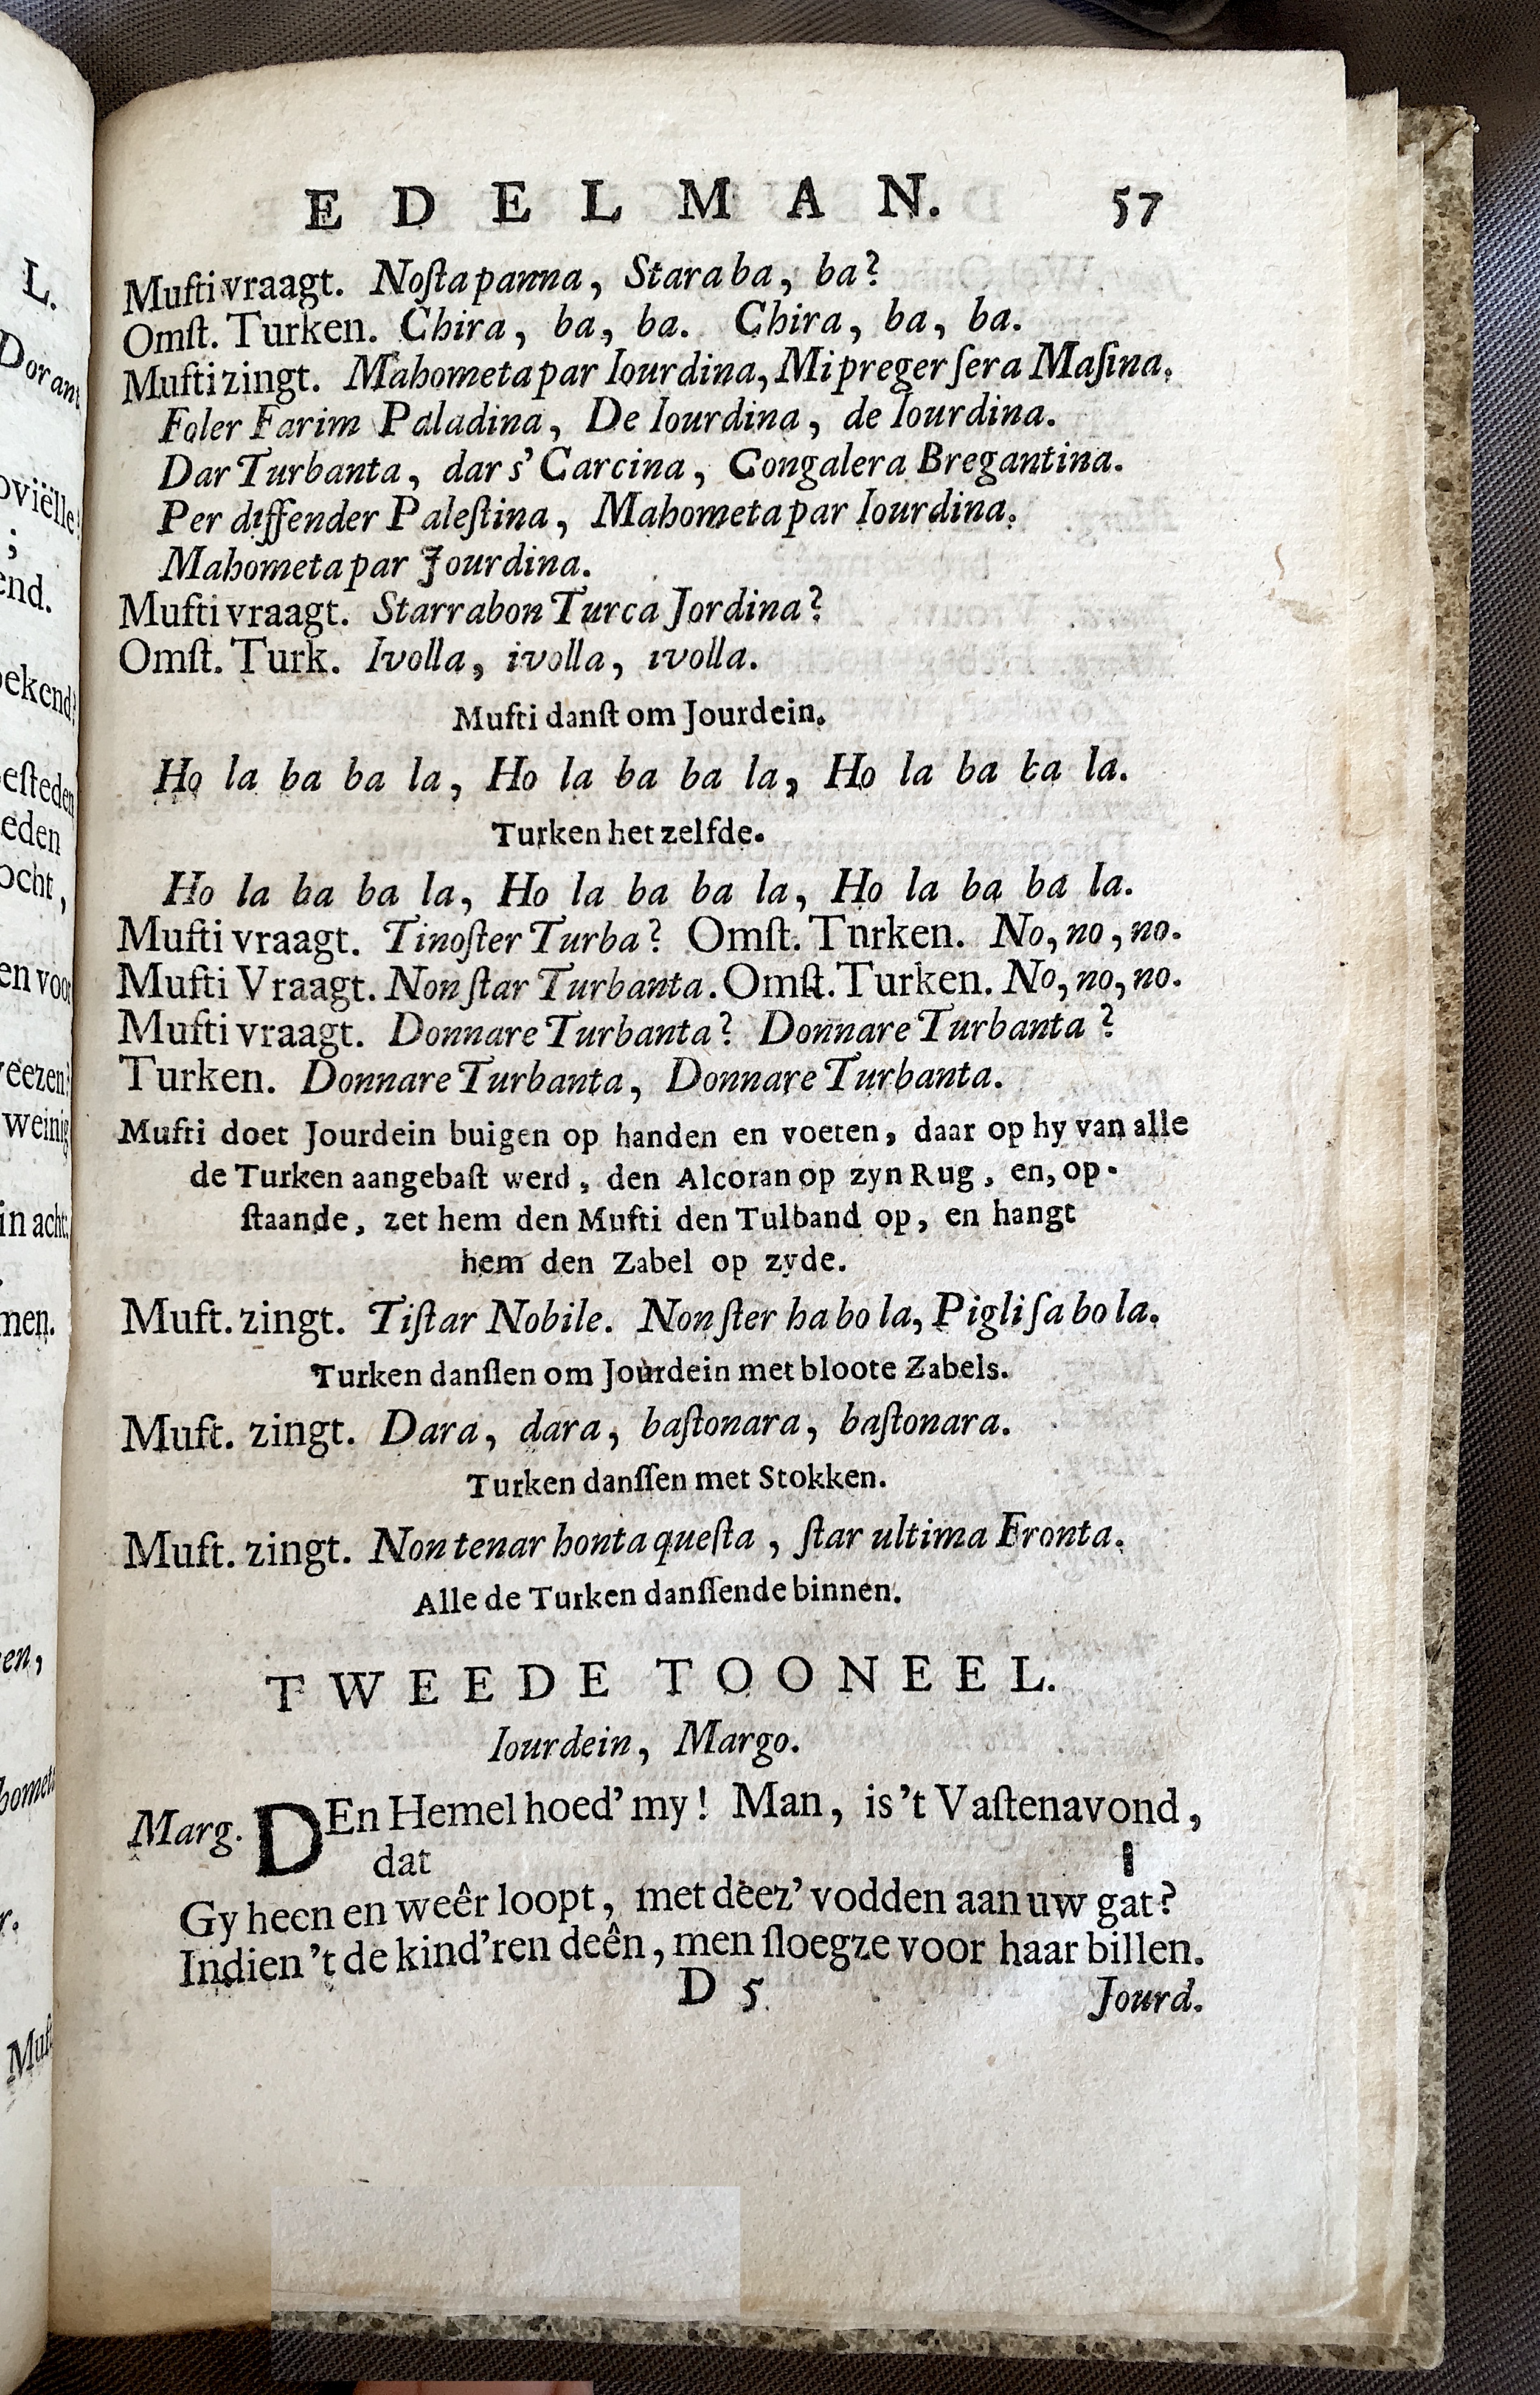 L.
Dorant
oviëlle!
;
end.
bekend?
esteden
eden
ocht,
en voor
veezen?
weinig
in acht:
men.
en,
homet
r.
Muf
EDELMAN. 57
Mufti vraagt. Noſta panna, Stara ba, ba?
Omſt. Turken. Chira, ba, ba. Chira, ba, ba.
Mufti zingt. Mahometa par Iourdina, Mi preger ſera Maſina.
Foler Farim Paladina, De Iourdina, de Iourdina.
Dar Turbanta, dar s' Carcina, Congalera Bregantina.
Per diffender Paleſtina, Mahometa par Iourdina.
Mahometa par Jourdina.
Mufti vraagt. Starrabon Turca Jordina?
Omſt. Turk. Ivolla, ivolla, ivolla.
Mufti danſt om Jourdein.
Ho la ba ba la, Ho la ba ba la, Ho la ba ba la.
Turken het zelfde.
Ho la ba ba la, Ho la ba ba la, Ho la ba ba la.
Mufti vraagt. Tinoſter Turba? Omſt. Tnrken. No, no, no.
Mufti Vraagt. Non ſtar Turbanta. Omſt. Turken. No, no, no.
Mufti vraagt. Donnare Turbanta? Donnare Turbanta?
Turken. Donnare Turbanta, Donnare Turbanta.
Mufti doet Jourdein buigen op handen en voeten, daar op hy van alle
de Turken aangebaſt werd, den Alcoran op zyn Rug, en, op-
ſtaande, zet hem den Mufti den Tulband op, en hangt
hem den Zabel op zyde.
Muft. zingt. Tiſtar Nobile. Non ſter ha bo la, Pigli ſa bo la.
Turken danſſen om Jourdein met bloote Zabels.
Muft. zingt. Dara, dara, baſtonara, baſtonara.
Turken danſſen met Stokken.
Muft. zingt. Non tenar honta queſta, ſtar ultima Fronta.
Alle de Turken danſſende binnen.
TWEEDE TOONEEL.
Iourdein, Margo.
Marg. DEn Hemel hoed' my! Man, is 't Vaſtenavond,
dat
Gy heen en weêr loopt, met deez' vodden aan uw gat?
Indien 't de kind'ren deên, men ſloegze voor haar billen.
D 5 Jourd.